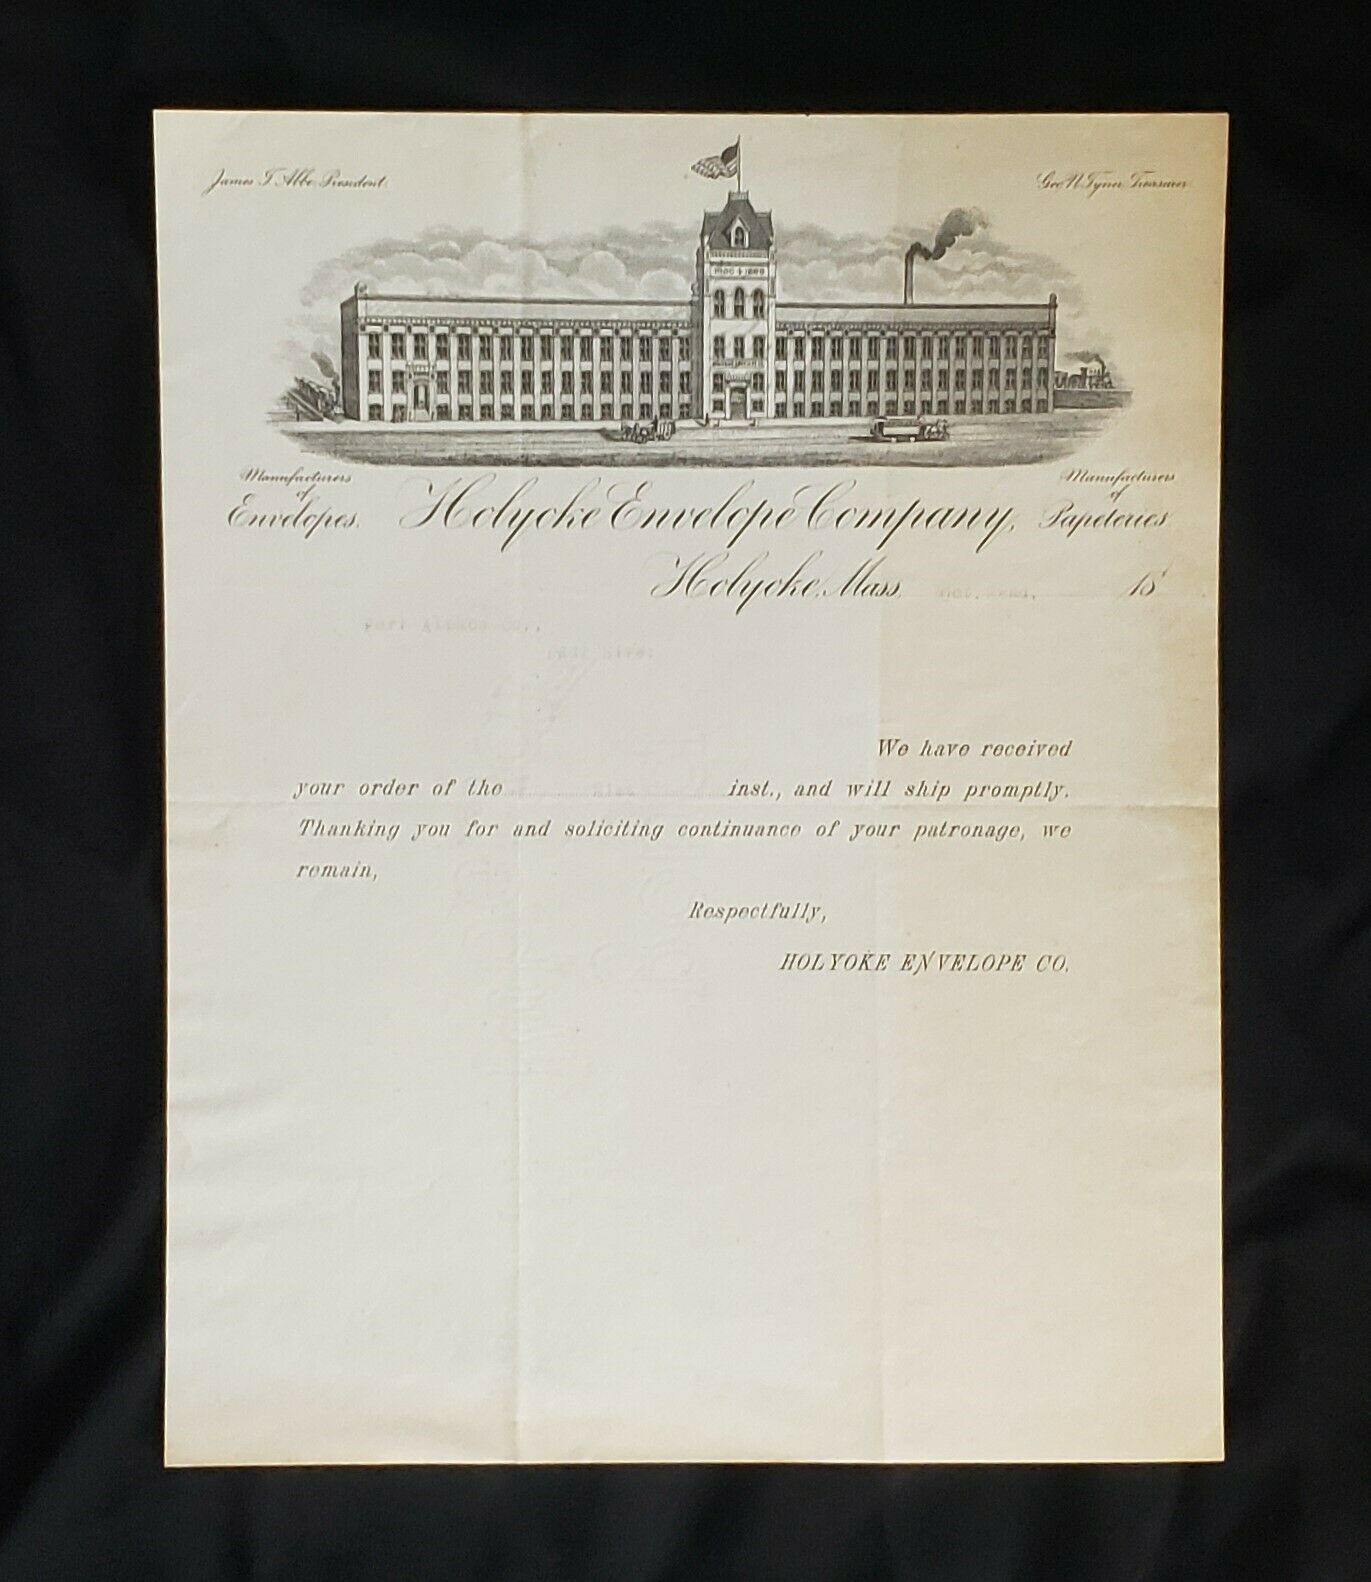 James T. Abbe President.
Geo. N. Tyner Treasurer
Manufacturers
of
Envelopes.
Holyoke Envelope Company,
Manufacturers
of
Papeteries
Holyoke, Mass. 18
We have received
your order of the inst., and will ship promptly.
Thanking you for and soliciting continuance of your patronage, we
remain,
Respectfully,
HOLYOKE ENVELOPE CO.